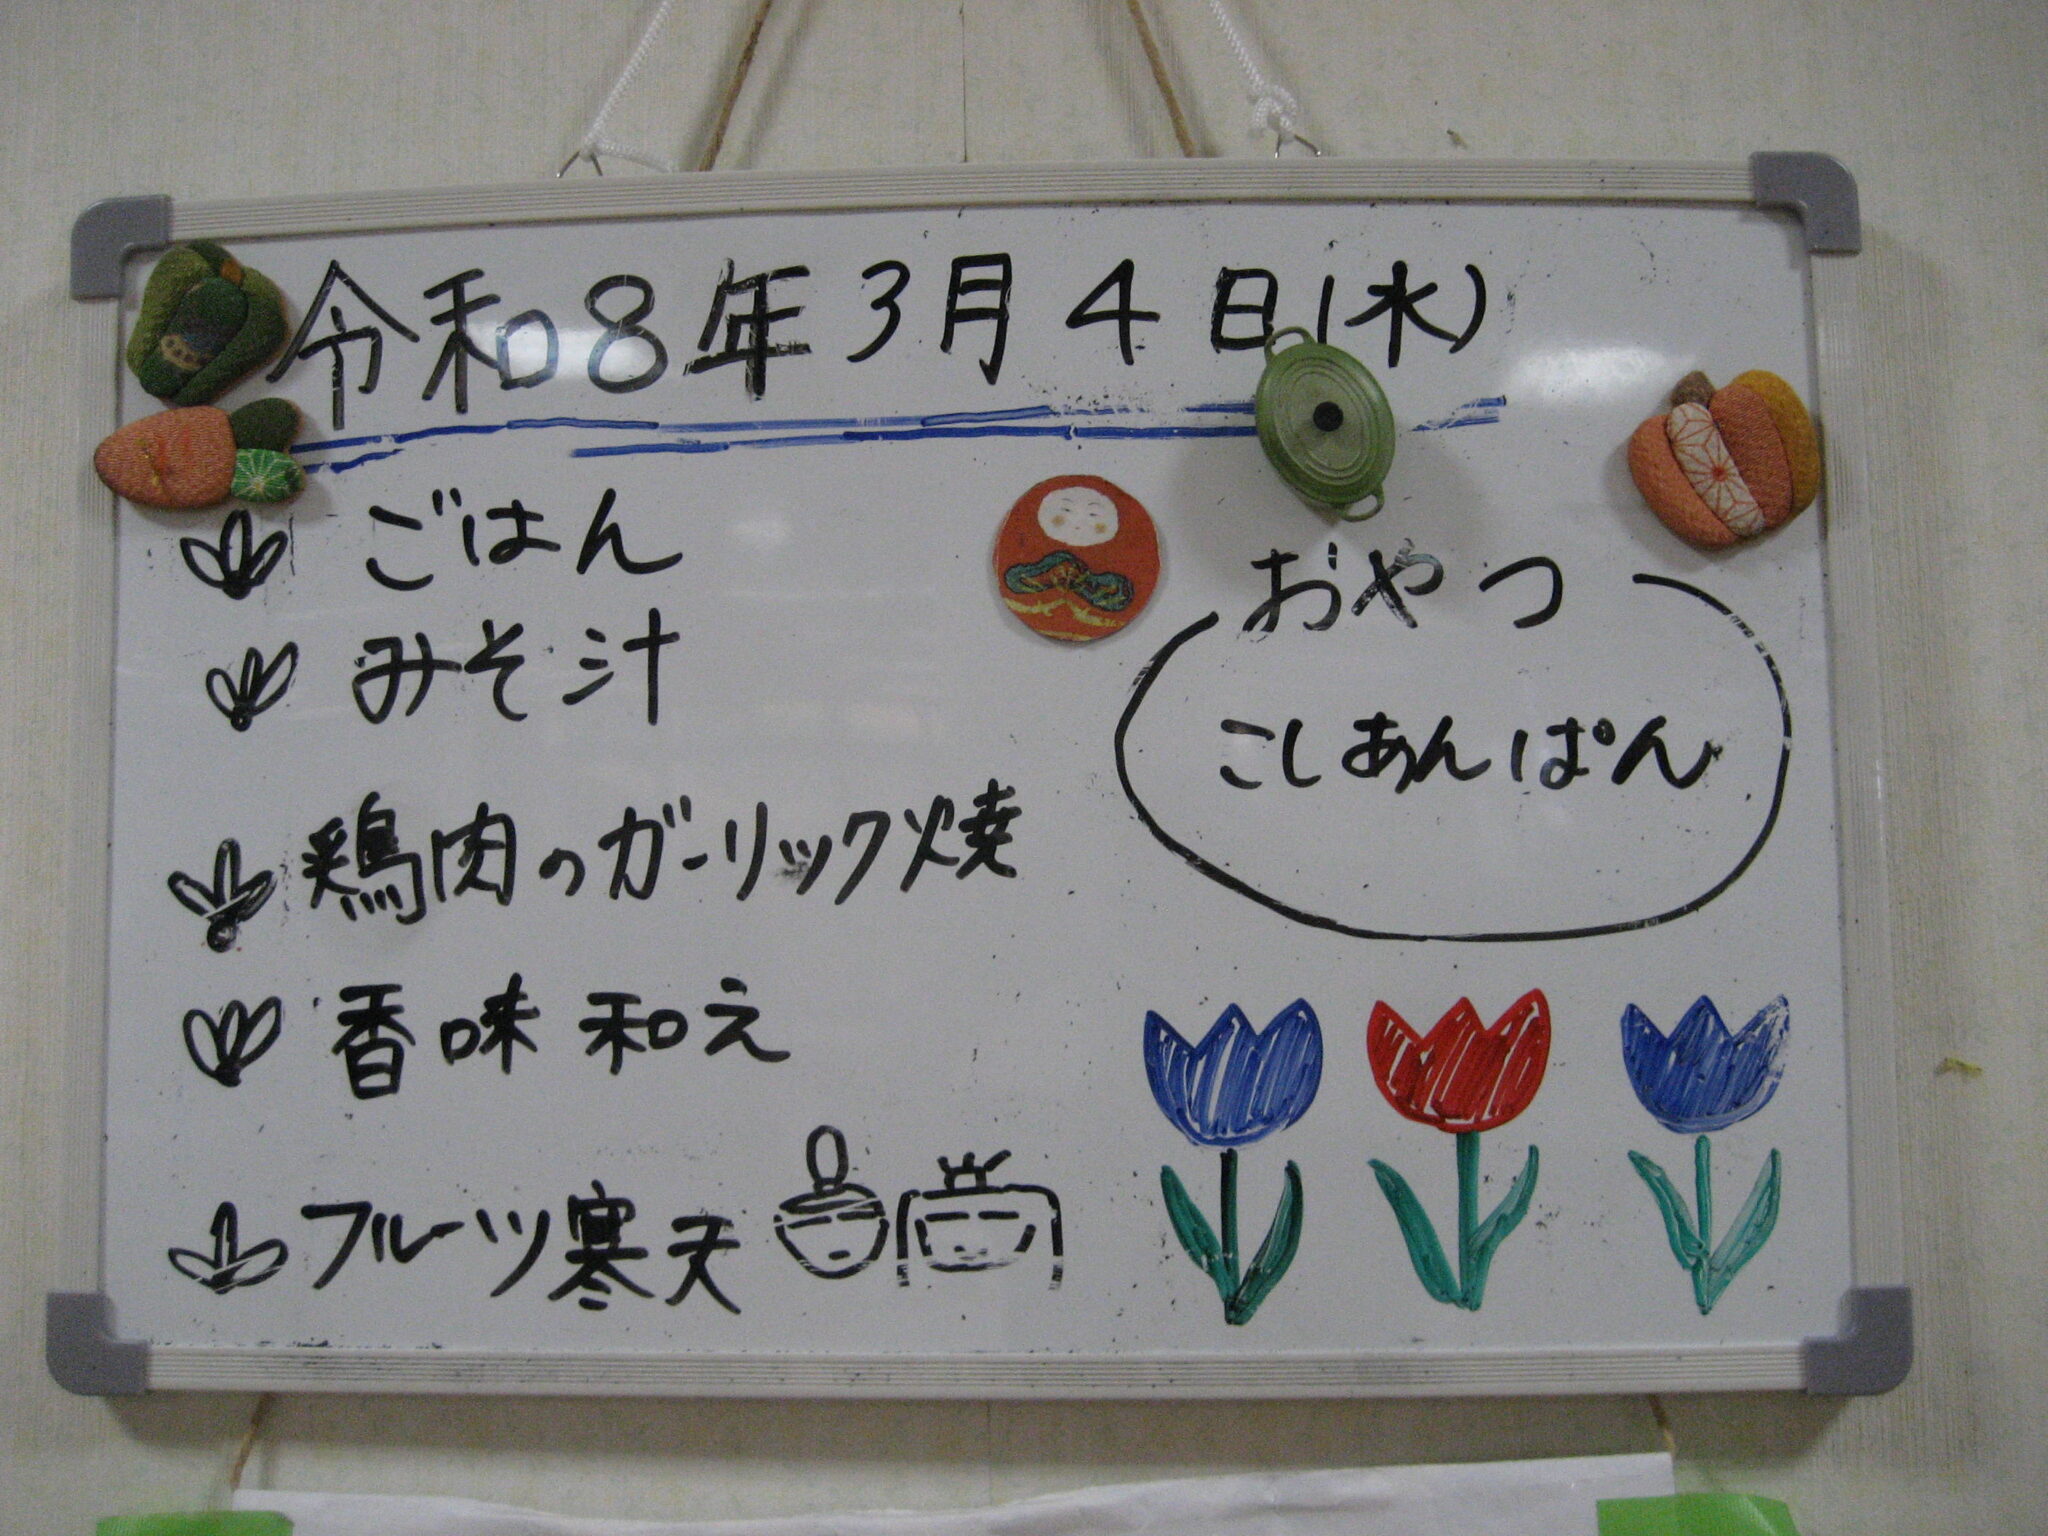 令和8年3月4日(水)
ごはん
みそ汁
鶏肉のガーリック焼
香味和え
フルーツ寒天
おやつ
こしあんぱん